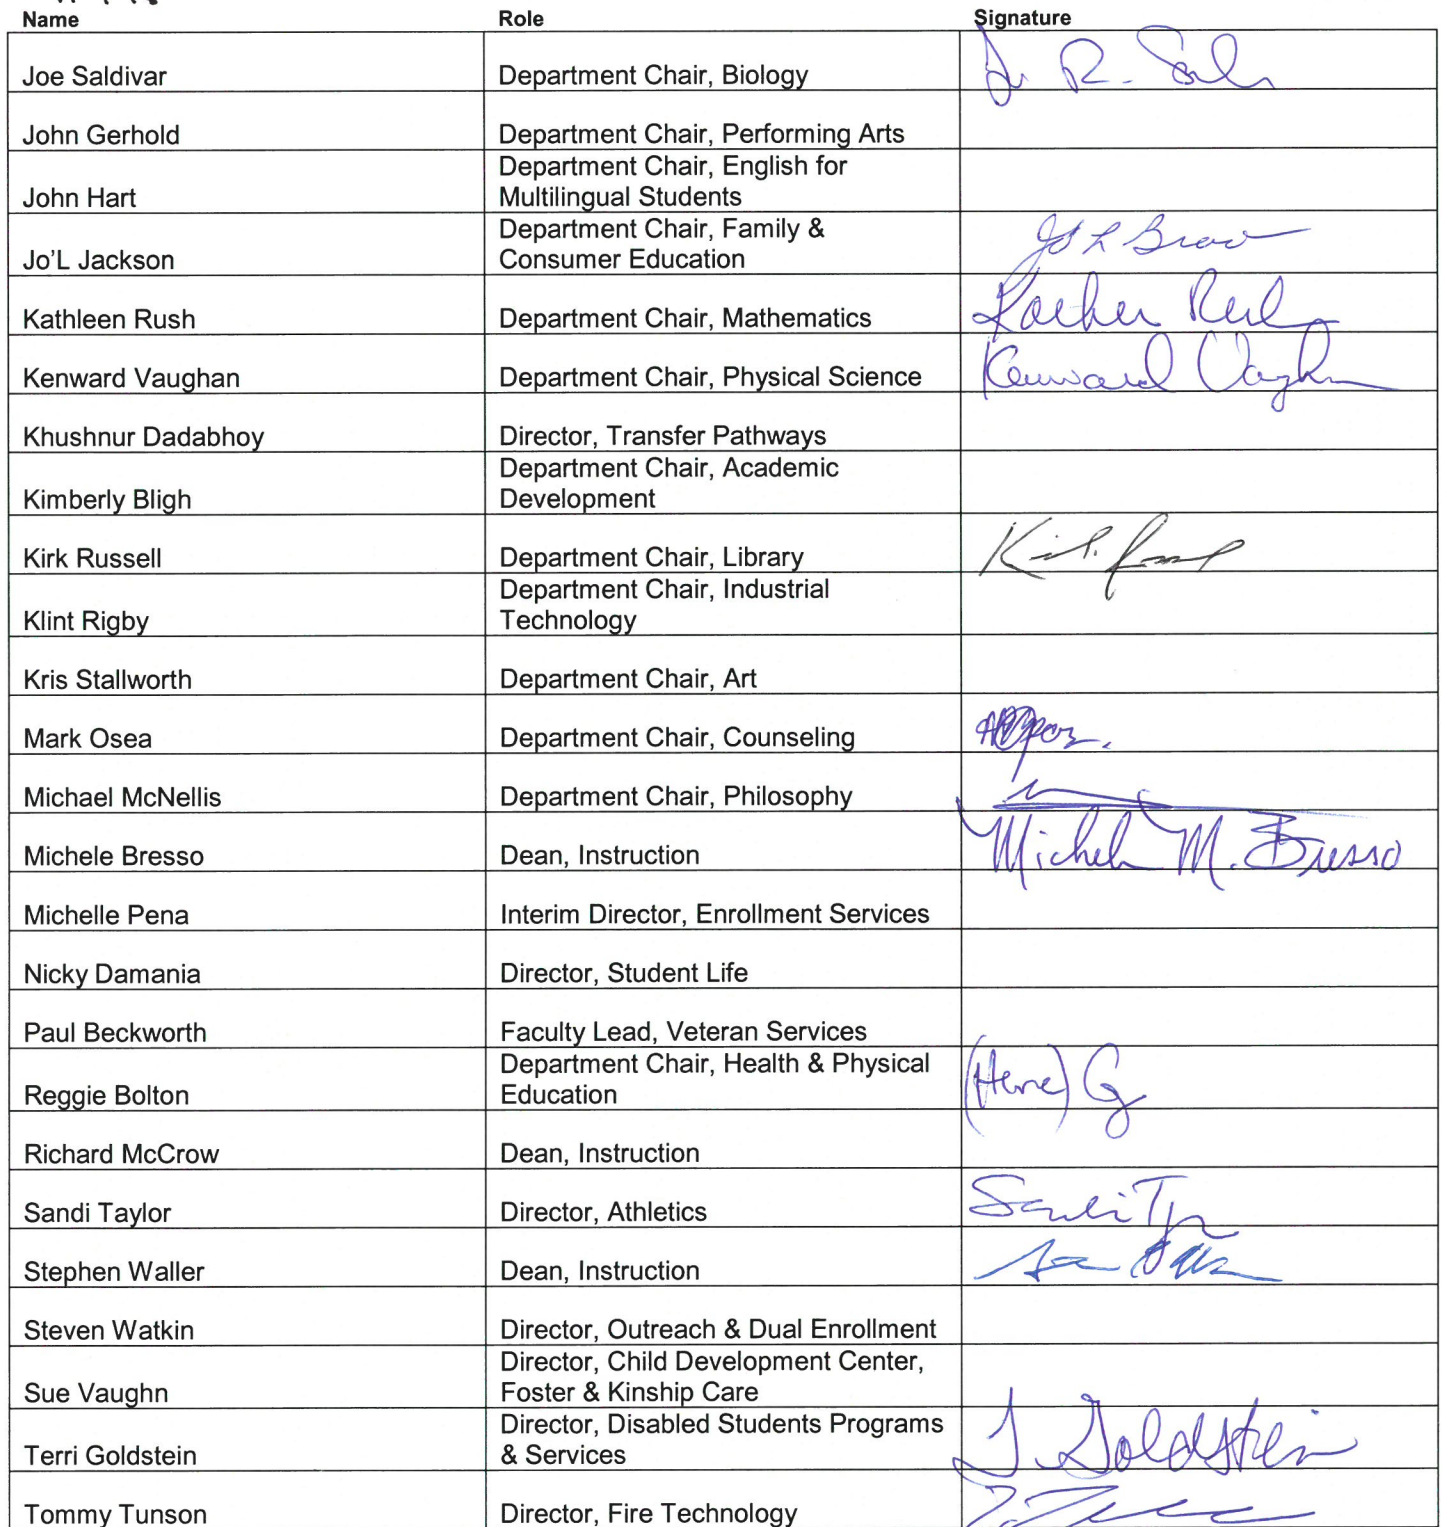 Name Role Signature
Joe Saldivar Department Chair, Biology
John Gerhold Department Chair, Performing Arts
Department Chair, English for
John Hart Multilingual Students
Department Chair, Family &
Jo'L Jackson Consumer Education
Kathleen Rush Department Chair, Mathematics
Kenward Vaughan Department Chair, Physical Science Kenward Vaughn
Khushnur Dadabhoy Director, Transfer Pathways
Department Chair, Academic
Kimberly Bligh Development
Kirk Russell Department Chair, Library
Department Chair, Industrial
Klint Rigby Technology
Kris Stallworth Department Chair, Art
Mark Osea Department Chair, Counseling
Michael McNellis Department Chair, Philosophy
Michele Bresso Dean, Instruction Michele M. Bresso
Michelle Pena Interim Director, Enrollment Services
Nicky Damania Director, Student Life
Paul Beckworth Faculty Lead, Veteran Services
Department Chair, Health & Physical
Reggie Bolton Education
Richard McCrow Dean, Instruction
Sandi Taylor Director, Athletics
Stephen Waller Dean, Instruction
Steven Watkin Director, Outreach & Dual Enrollment
Director, Child Development Center,
Sue Vaughn Foster & Kinship Care
Director, Disabled Students Programs
Terri Goldstein & Services T. Goldstein
Tommy Tunson Director, Fire Technology